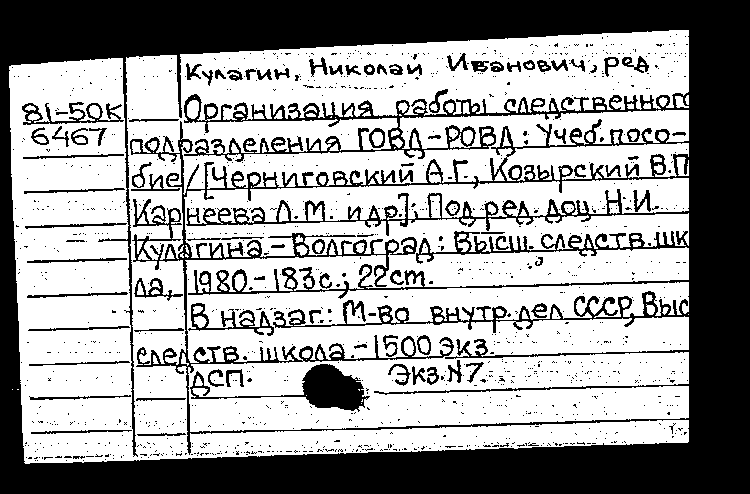 Кулагин, Николай Иванович, ред.
81-50К Организация работы следственног
6467 подразделения ГОВД-РОВД: Учеб. посо-
бие/[Черниговский А.Г., Козырский В.П
Карнеева Л.М. и др.]; Под ред. доц. Н.И.
Кулагина.-Волгоград: Высш. следств. шк
ла, 1980.-183с.; 22см.
В надзаг.: М-во внутр. дел СССР, Выс
следств. школа.-1500 экз.
ДСП. Экз.N7.